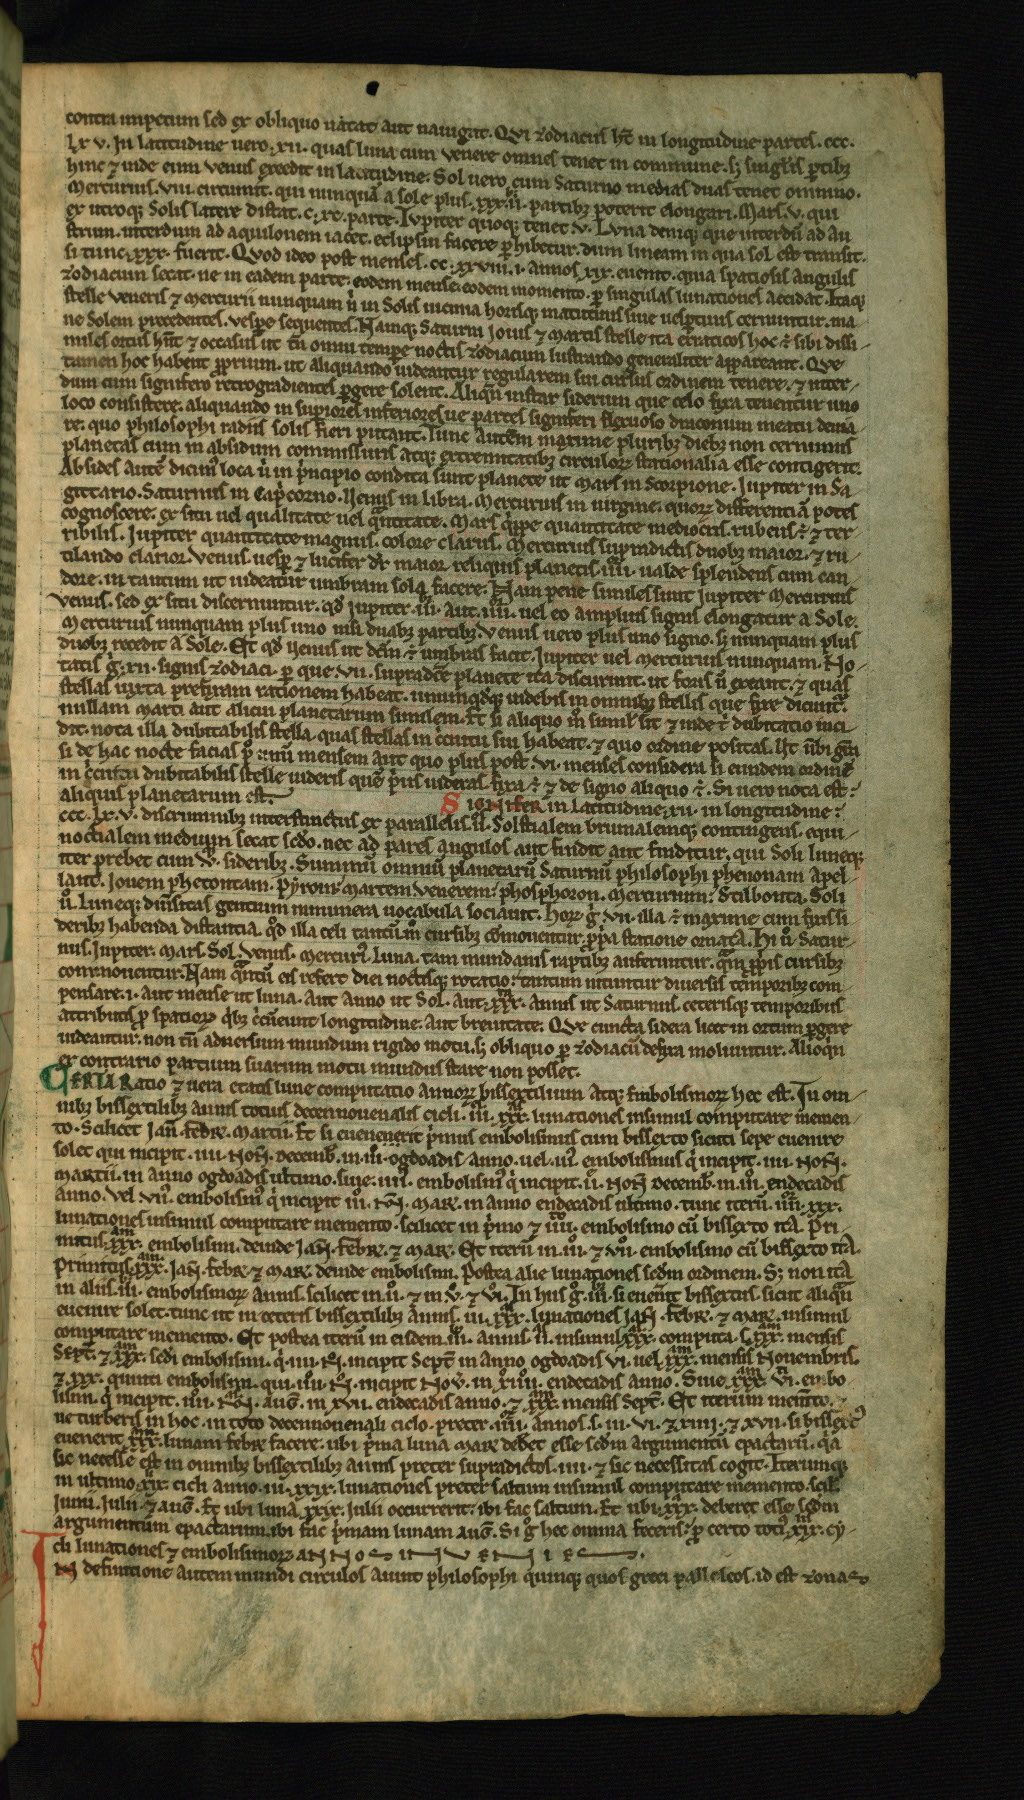 contra impetum sed ex obliquo natat aut nauigat. Qui zodiacus ht̄ in longitudine partes. ccc.
lx v. In latitudine uero. xii. quas luna cum venere omnes tenet in commune. sꝫ singlis ꝑtibꝫ
hinc ⁊ inde eum venus excedit in latitudine. Sol uero cum Saturno medias duas tenet omnino.
Mercurius. viii. circumit. qui nunquā a sole plus. partibꝫ poterit elongari. Mars. v. qui
ex utroqꝫ Solis latere distat. c. xx. parte. Iupiter quoqꝫ tenet. v. Luna deniqꝫ que interdū ad au
strum. interdum ad aquilonem iacet. eclipsin facere ꝑhibetur. dum lineam in qua sol est transit.
si tunc. xxx. fuerit. Quod ideo post menses. cc. xxviii. i. annos xix. euenit. quia spatiosis angulis
zodiacum secat. ne in eadem parte. eodem mense. eodem momento. ꝑ singulas lunationes accidat. Itaqꝫ
stelle veneris ⁊ mercurii nunquam ñ in Solis uicinia horisqꝫ matutinis siue uespertinis cernuntur. ma
ne Solem precedentes. vespe sequentes. Namqꝫ Saturni Iouis ⁊ Martis stelle ita erraticos hoc ē sibi dissi-
miles ortus hn̄t ⁊ occasus ut tn̄ omni tempe noctis zodiacum lustrando generaliter appareant. Que
tamen hoc habent ꝓprium. ut aliquando uideantur regularem sui cursus ordinem tenere. ⁊ inter-
dum cum signifero retrogradientes ꝑgere solent. Aliqn̄ instar siderum que celo fixa tenentur uno
loco consistere. aliquando in supiores inferioresue partes signiferi flexuoso draconum meatu deuia
re. quo philosophi radiis solis fieri putant. Tunc autem maxime pluribꝫ diebꝫ non cernimus
planetas cum in absidum commissuris atqꝫ extremitatibꝫ circuloꝝ stationalia esse contigerit.
Absides autē dicim᷒ loca ū in p̃ncipio condita sunt planete ut Mars in Scorpione. Iupiter in Sa
gittario. Saturnus in Cap̃corno. Venus in libra. Mercurius in uirgine. quoꝝ differentiā potes
cognoscere. ex situ uel qualitate uel q̄ntitate. Mars q̄ppe quantitate mediocris. rubeus ē ⁊ ter
ribilis. Iupiter quantitate magnus. colore clarus. Mercurius supradictis duobꝫ maior. ⁊ ru
tilando clarior. Venus. uespꝫ ⁊ lucifer dr̄ maior reliquis planetis. iiii. ualde splendens cum can
dore. in tantum ut uideatur umbram sola facere. Nam pene similes sunt Iupiter Mercurius
Venus. sed ex situ discernuntur. qd̄ Iupiter. iii. aut. iiii. uel eo amplius signis elongatur a Sole.
Mercurius nunquam plus uno nisi duabꝫ partibꝫ. Venus uero plus uno signo. sꝫ nunquam plus
duobꝫ recedit a Sole. Et qd̄ Venus ut dcm̄ ē umbras facit. Iupiter uel Mercurius nunquam. No-
tatis g̃. xii. signis zodiaci. ꝑ que. vii. supradc̄e planete ita discurrunt. ut foris ñ exeant. ⁊ quas
stellas iuxta prefixam rationem habeat. unumqdqꝫ uidebis in omnibꝫ stellis que fixe dicunt᷒.
nullam Marti aut alicui planetarum similem. Et si aliquo m̊ simil᷒ sit ⁊ inde ē dubitatio inci
dit. nota illa dubitabilis stella. quas stellas in c̃cuitu sui habeat. ⁊ quo ordine positas.
si de hac nocte facias mensem aut quo plus post. vi. menses considera si eundem ordinē
in c̃cuitu dubitabilis stelle uideris quē p̃us uideras. fixa ē ⁊ de signo aliquo ē. Si uero nota est.
aliquis planetarum est.
Signifer in latitudine. xii. in longitudine.
ccc. lx. v. discriminibꝫ interstinctus ex parallelis. ii. Solstitialem brumalemqꝫ contingens. equi-
noctialem medium secat scdo. nec ad pares angulos aut findit aut finditur. qui Soli luneqꝫ
iter prebet cum v. sideribꝫ. Summū omniū planetarū Saturnū philosophi phenonam apel
lant. Iouem phetontam. Pyrion Martem venerem. phosphoron. Mercurium. Stilbonta. Soli
ū. Luneqꝫ. diūsitas gentium innumera uocabula sociauit. Hoꝝ g̃ vii. illa ē maxime cum fixis si
deribꝫ habenda distantia. qd̄ illa celi tantū m̊ cursibꝫ cōmouentur. ꝓp̃a statione ornata. Hi ū Satur
nus. Iupiter. Mars. Sol. Venus. Mercuri᷒. Luna. tam mundanis raptibꝫ auferuntur. q̄m ꝓp̃is cursibꝫ
commouentur. Nam q̄ntū eis refert diei noctisqꝫ rotatio. tantum nituntur diuersis temporibꝫ com
pensare. i. aut mense ut luna. aut anno ut Sol. aut. xxx. annis ut Saturnus. ceterisqꝫ temporibus
attributis ꝓ spatioꝝ q̃bꝫ c̃cūeunt longitudine. aut breuitate. Que cuncta sidera licet in ortum ꝑgere
uideantur. non tn̄ aduersum mundum rigido motu. sꝫ obliquo ꝑ zodiacū defixa moliuntur. Alioqn̄
ex contrario partium suarum motu mundus stare non posset.
Certa ratio ⁊ uera etatis lune computatio annoꝝ bissextilium atqꝫ embolismoꝝ hec est. In om-
nibꝫ bissextilibꝫ annis totius decennouenalis cicli. iii. xxx. lunationes insimul computare memen-
to. Scilicet Ian̄. Febr̄. Martii. Et si euenerit p̃mus embolismus cum bissexto sicuti sepe euenire
solet qui incipit. iiii. Non̄. Decemb̄. in. iii. ogdoadis anno. uel. embolismus q̃ incipit. iiii. Non̄.
Martii. in anno ogdoadis ultimo. siue. embolism᷒ q̃ incipit. ii. Non̄ Decemb̄. in. iii. endecadis
anno. Vel. vii. embolism᷒ q̃ incipit iii. Non̄. Mar. in anno endecadis ultimo. tunc iterū. iiii. xxx.
lunationes insimul computare memento. scilicet in p̃mo ⁊ embolismo cū bissexto ita. Pri-
mitus. xxx. embolismi. deinde Ian̄. Febr̄. ⁊ Mar. Et iterū in. iii. ⁊ vii. embolismo cū bissexto ita.
Primitus. xxx. Ian̄. Febr̄. ⁊ Mar. deinde embolismi. Postea alie lunationes scd̄m ordinem. Sꝫ non ita
in aliis. iii. embolismoꝝ annis. scilicet in. ii. ⁊ in. v. ⁊ vi. In his g̃. iii. si euenit bissextus. sicut aliqn̄
euenire solet. tunc ut in ceteris bissextilibꝫ annis. iii. xxx. lunationes Ian̄. Febr̄. ⁊ Mar. insimul
computare memento. Et postea iterū in eisdem. iii. annis. ii. insimul xxx. computa. s. xxx. mensis
Sept̄. ⁊ xxx. scdi embolismi. q̃. iiii. incipit Sept̄ in anno ogdoadis vi. uel xxx. mensis Nouembris.
⁊ xxx. quinti embolismi. qui. iiii. incipit Nou̅. in. endecadis anno. Siue. xxx. vi. embo
lismi. q̃ incipit. iiii. Aug̅. in. xvii. endecadis anno. ⁊ xxx. mensis Sept̄. Et iterum mento.
ne turberis in hoc. in toto decennouenali ciclo. preter. iiii. annos. s. iii. vi. ⁊ xiiii. ⁊ xvii. si bissext᷒
euenerit. xxx. lunam Febr̄ facere. ubi p̃ma luna Mar. debet esse scd̄m argumentū epactarū. q̃a
sic necesse est in omnibꝫ bissextilibꝫ annis preter supradictos. iiii. ⁊ sic necessitas cogit. Iterumqꝫ
in ultimo. xix. cicli anno. iii. xxix. lunationes preter saltum insimul computare memento. scil᷒
Iunii. Iulii. ⁊ Aug̅. Et ubi luna. xxix. Iulii occurrerit. ibi fac saltum. Et ubi. xxx. deberet esse scd̄m
argumentum epactarum. ibi fac p̃mam lunam Aug̅. Si g̃ hec omnia feceris. ꝓ certo toti᷒. xix. cy-
cli lunationes ⁊ embolismoꝝ annos inuenire.
In definitione autem mundi circulos aiunt philosophi quinqꝫ quos greci paralleleos. id est zonas